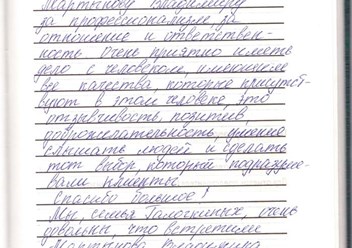 Мартынову Владимиру
за профессионализм, за
отношение и ответствен-
ность. Очень приятно иметь
дело с человеком, имеющим
все качества, которые присутст-
вуют в этом человеке, это
отзывчивость, позитив
доброжелательность, умение
слышать людей и сделать
тот выбор, который подразуме-
вали клиенты.
Спасибо большое!
Мы, семья очень
довольны, что встретили
Мартынова Владимира